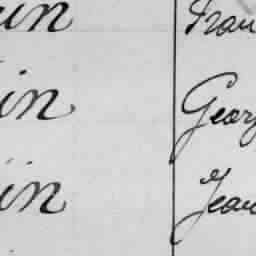 in Fran
in Georg
in Jean